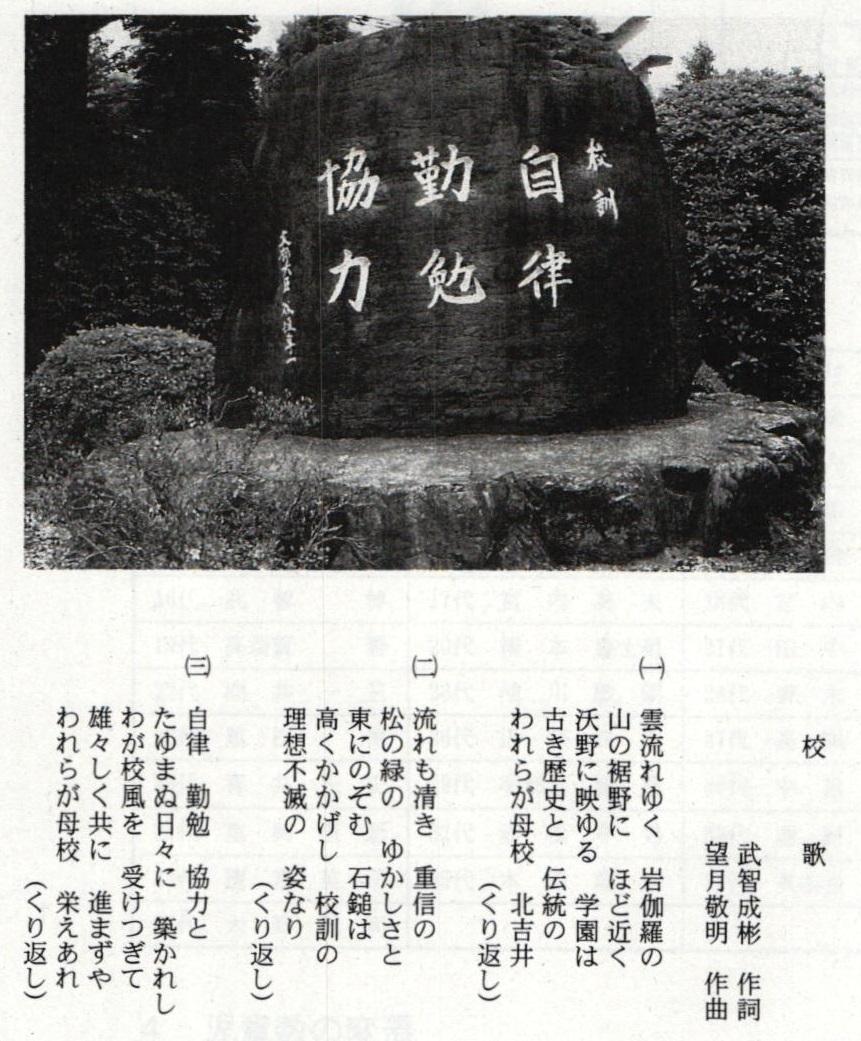 校訓
自律
勤勉
協力
文部大臣 谷垣専一
校歌
武智成彬 作詞
望月敬明 作曲
㈠ 雲流れゆく 岩伽羅の
山の裾野に ほど近く
沃野に映ゆる 学園は
古き歴史と 伝統の
われらが母校 北吉井
(くり返し)
㈡ 流れも清き 重信の
松の緑の ゆかしさと
東にのぞむ 石鎚は
高くかかげし 校訓の
理想不滅の 姿なり
(くり返し)
㈢ 自律 勤勉 協力と
たゆまぬ日々に 築かれし
わが校風を 受けつぎて
雄々しく共に 進まずや
われらが母校 栄えあれ
(くり返し)